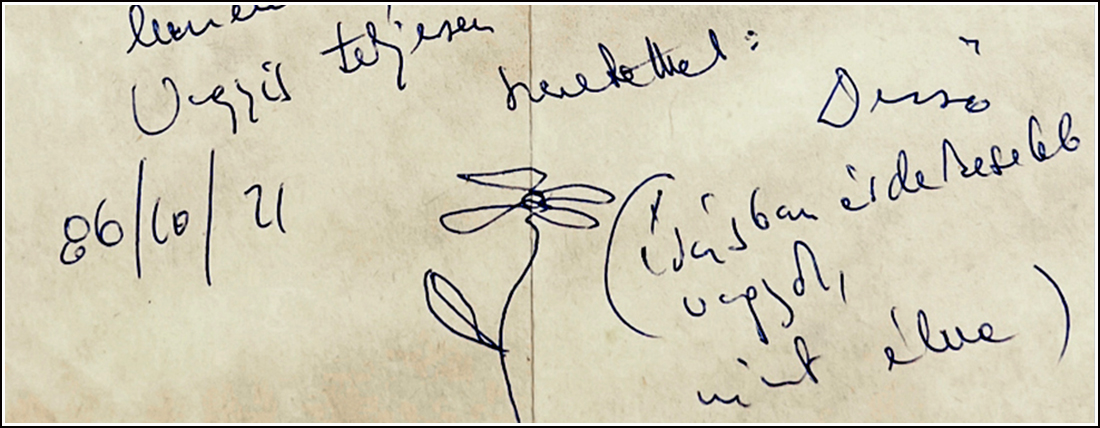 Vagyis teljesen
szeretettel:
Dezső
86/10/21
(Írásban érdekesebb
vagyok,
mint élve)